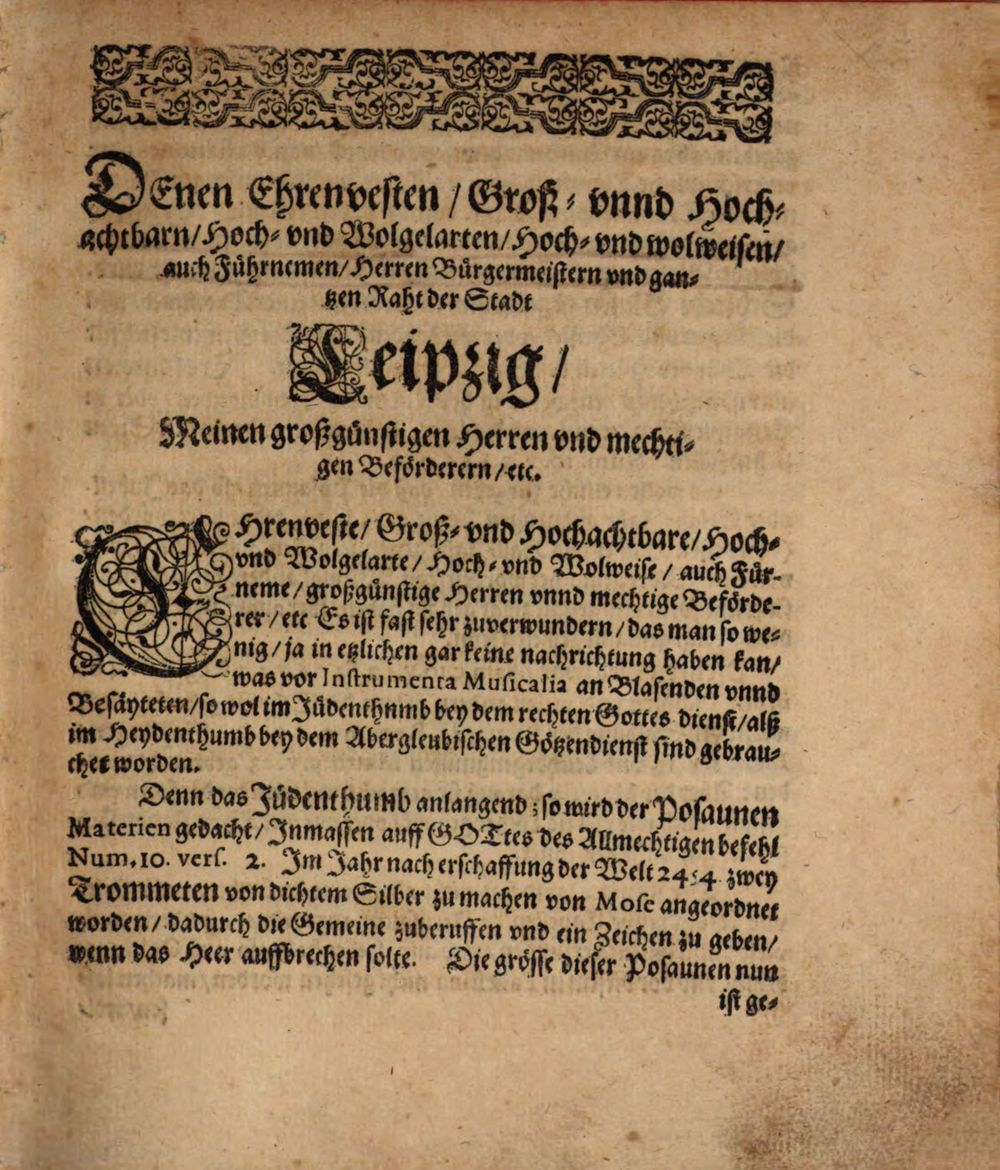 DEnen Ehrenvesten / Groß⸗ vnnd Hoch⸗
achtbarn/Hoch⸗ vnd Wolgelarten/Hoch⸗ vnd wolweisen/
auch Führnemen/Herren Bürgermeistern vnd gan⸗
tzen Raht der Stadt
Leipzig/
Meinen großgünstigen Herren vnd mechti⸗
gen Beförderern/etc.
EHrenveste/ Groß⸗ vnd Hochachtbare/Hoch⸗
vnd Wolgelarte/ Hoch⸗ vnd Wolweise / auch Für⸗
neme/großgünstige Herren vnnd mechtige Beförde⸗
rer/etc Es ist fast sehr zuverwundern/das man so we⸗
nig/ja in etzlichen gar keine nachrichtung haben kan/
was vor Instrumenta Musicalia an Blasenden vnnd
Besäyteten/so wol im Jüdenthnmb bey dem rechten Gottes dienst/alß
im Heydenthumb bey dem Abergleubischen Götzendienst sind gebrau⸗
chet worden.
Denn das Jüdenthumb anlangend; so wird der Posaunen
Materien gedacht/ Inmassen auff GOTtes des Allmechtigen befehl
Num. 10. vers. 2. Im Jahr nach erschaffung der Welt zwey
Trommeten von dichtem Silber zu machen von Mose angeordnet
worden/ dadurch die Gemeine zuberuffen vnd ein Zeichen zu geben/
wenn das Heer auffbrechen solte. Die grösse dieser Posaunen nun
ist ge⸗